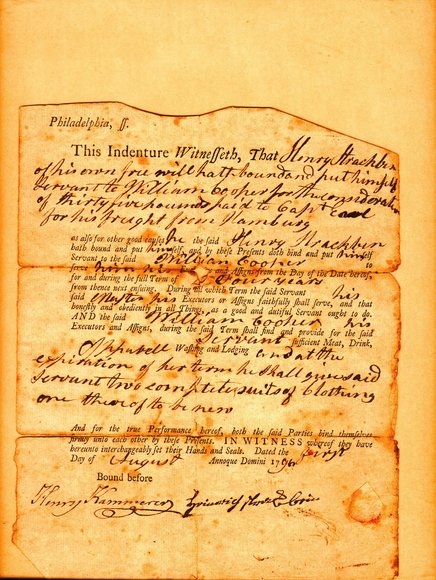 Philadelphia, ſſ.
This Indenture Witneſſeth, That Henry Strachbin
of his own free will hath bound and put himself
servant to William Cooper for the consideration
of thirty five pounds paid to Capt Earl
for his freight from Hamburg
as also for other good cauſes he the said Henry Strachbin
hath bound and put himself, and by theſe Preſents doth bind and put himself
Servant to the said William Cooper
serve him his Exrs and Aſſigns from the Day of the Date hereof,
for and during the full Term of Four years
from thence next enſuing. During all which Term the said Servant his
said Master his Executors or Aſſigns faithfully shall serve, and that
honestly and obediently in all Things, as a good and dutiful Servant ought to do.
AND the said William Cooper his
Executors and Aſſigns, during the Term shall find and provide for the said
Servant sufficient Meat, Drink,
Apparell Waſhing and Lodging and at the
expiration of his term he shall give said
servant two complete suits of Clothing
one thereof to be new
And for the true Performance hereof, both the said Parties bind themselves
firmly unto each other by theſe Preſents. IN WITNESS whereof they have
hereunto interchangeably set their Hands and Seals. Dated the first
Day of August Annoque Domini 179
Bound before
Henry Kammerer